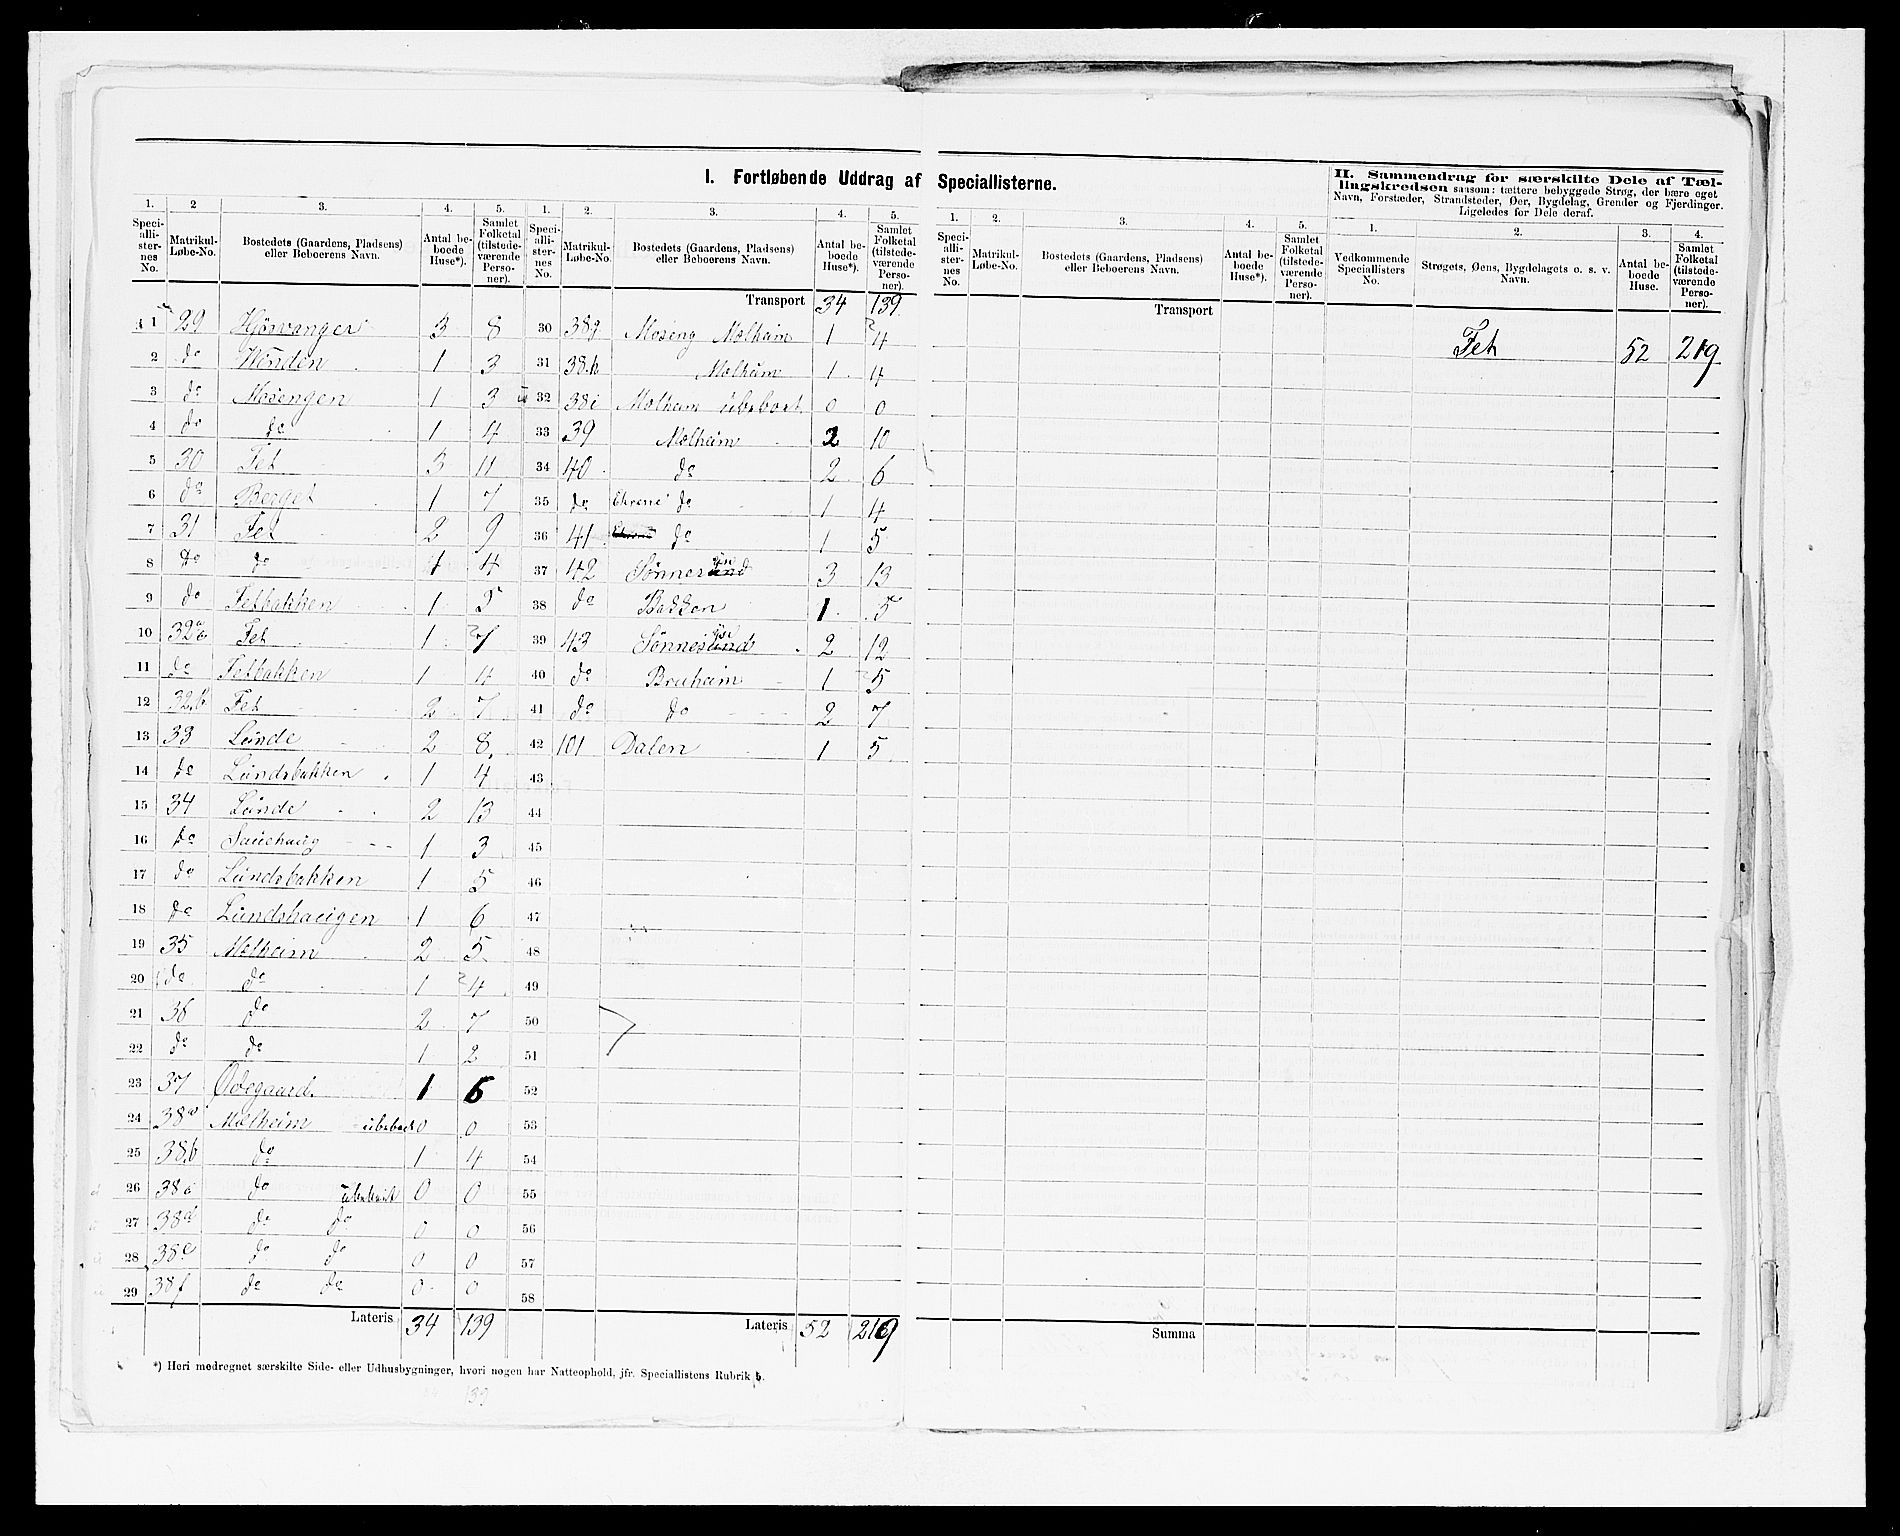 I. Fortløbende Uddrag af Speciallisterne.
1. 2 3. 4. 5.
Speciallisternes No. Matrikul-Løbe-No. Bostedets (Gaardens, Pladsens) eller Beboerens Navn. Antal beboede Huse*). Samlet Folketal (tilstedeværende Personer).
1 29 3 8
2 do 1 3
3 do Mosengen 1 3
4 do do 1 4
5 30 Fet 3 11
6 do Berget 1 7
7 31 Fet 2 9
8 do do 1 4
9 do Fetbakken 1 5
10 Fet 1 7
11 do Fetbakken 1 4
12 32b Fet 2 7
13 33 Lunde 2 8
14 do Lundsbakken 1 4
15 34 Lunde 2 13
16 do Sauehaug 1 3
17 do Lundsbakken 1 5
18 do Lundshaugen 1 6
19 35 Molheim 2 5
20 do do 1 4
21 36 do 2 7
22 do do 1 2
23 37 Ødegaard. 1 6
24 38a Molheim 0 0
25 38b do 1 4
26 do ubeboet 0 0
27 38d do do 0 0
28 38e do do 0 0
29 38f do do 0 0
Lateris 34 139
1. 2. 3. 4. 5.
Speciallisternes No. Matrikul-Løbe-No. Bostedets (Gaardens, Pladsens) eller Beboerens Navn. Antal beboede Huse*). Samlet Folketal (tilstedeværende Personer).
Transport 34 139
30 38g Moseng Molheim 1 4
31 38h Molheim 1 4
32 38i Molheim ubeboet 0 0
33 39 Molheim 2 10
34 40 do 2 6
35 do do 1 4
36 41 do 1 5
37 42 3 13
38 do Bakken 1 5
39 43 2 12
40 do Bruheim 1 5
41 do do 2 7
42 101 Dalen 1 5
43
44
45
46
47
48
49
50
51
52
53
54
55
56
57
58
Lateris 52 219
*) Heri medregnet særskilte Side- eller Udhusbygninger, hvori nogen har Natteophold, jfr. Speciallistens Rubrik b.
139
1. 2. 3. 4. 5.
Speciallisternes No. Matrikul-Løbe-No. Bostedets (Gaardens, Pladsens) eller Beboerens Navn. Antal beboede Huse*). Samlet Folketal (tilstedeværende Personer).
Transport
Summa
II. Sammendrag for særskilte Dele af Tællingskredsen saasom: tættere bebyggede Strøg, der bære eget
Navn, Forstæder, Strandsteder, Øer, Bygdelag, Grender og Fjerdinger.
Ligeledes for Dele deraf.
1. 2. 3. 4.
Vedkommende Speciallisters No. Strøgets, Øens, Bygdelagets o. s. v. Navn. Antal beboede Huse. Samlet Folketal (tilstedeværende Personer).
Fet 52 219